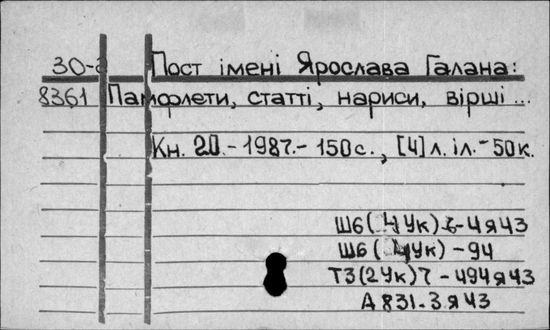 30-
Пост імені Ярослава Галана:
8361 Памфлети, статті, нариси, вірші...
Кн. 20.-1987.-150с., [4]л.іл.-50к.
Ш6(4Ук)6-4я43
Ш6(4Ук)-94
Т3(2Ук)7-494я43
А831.3я43